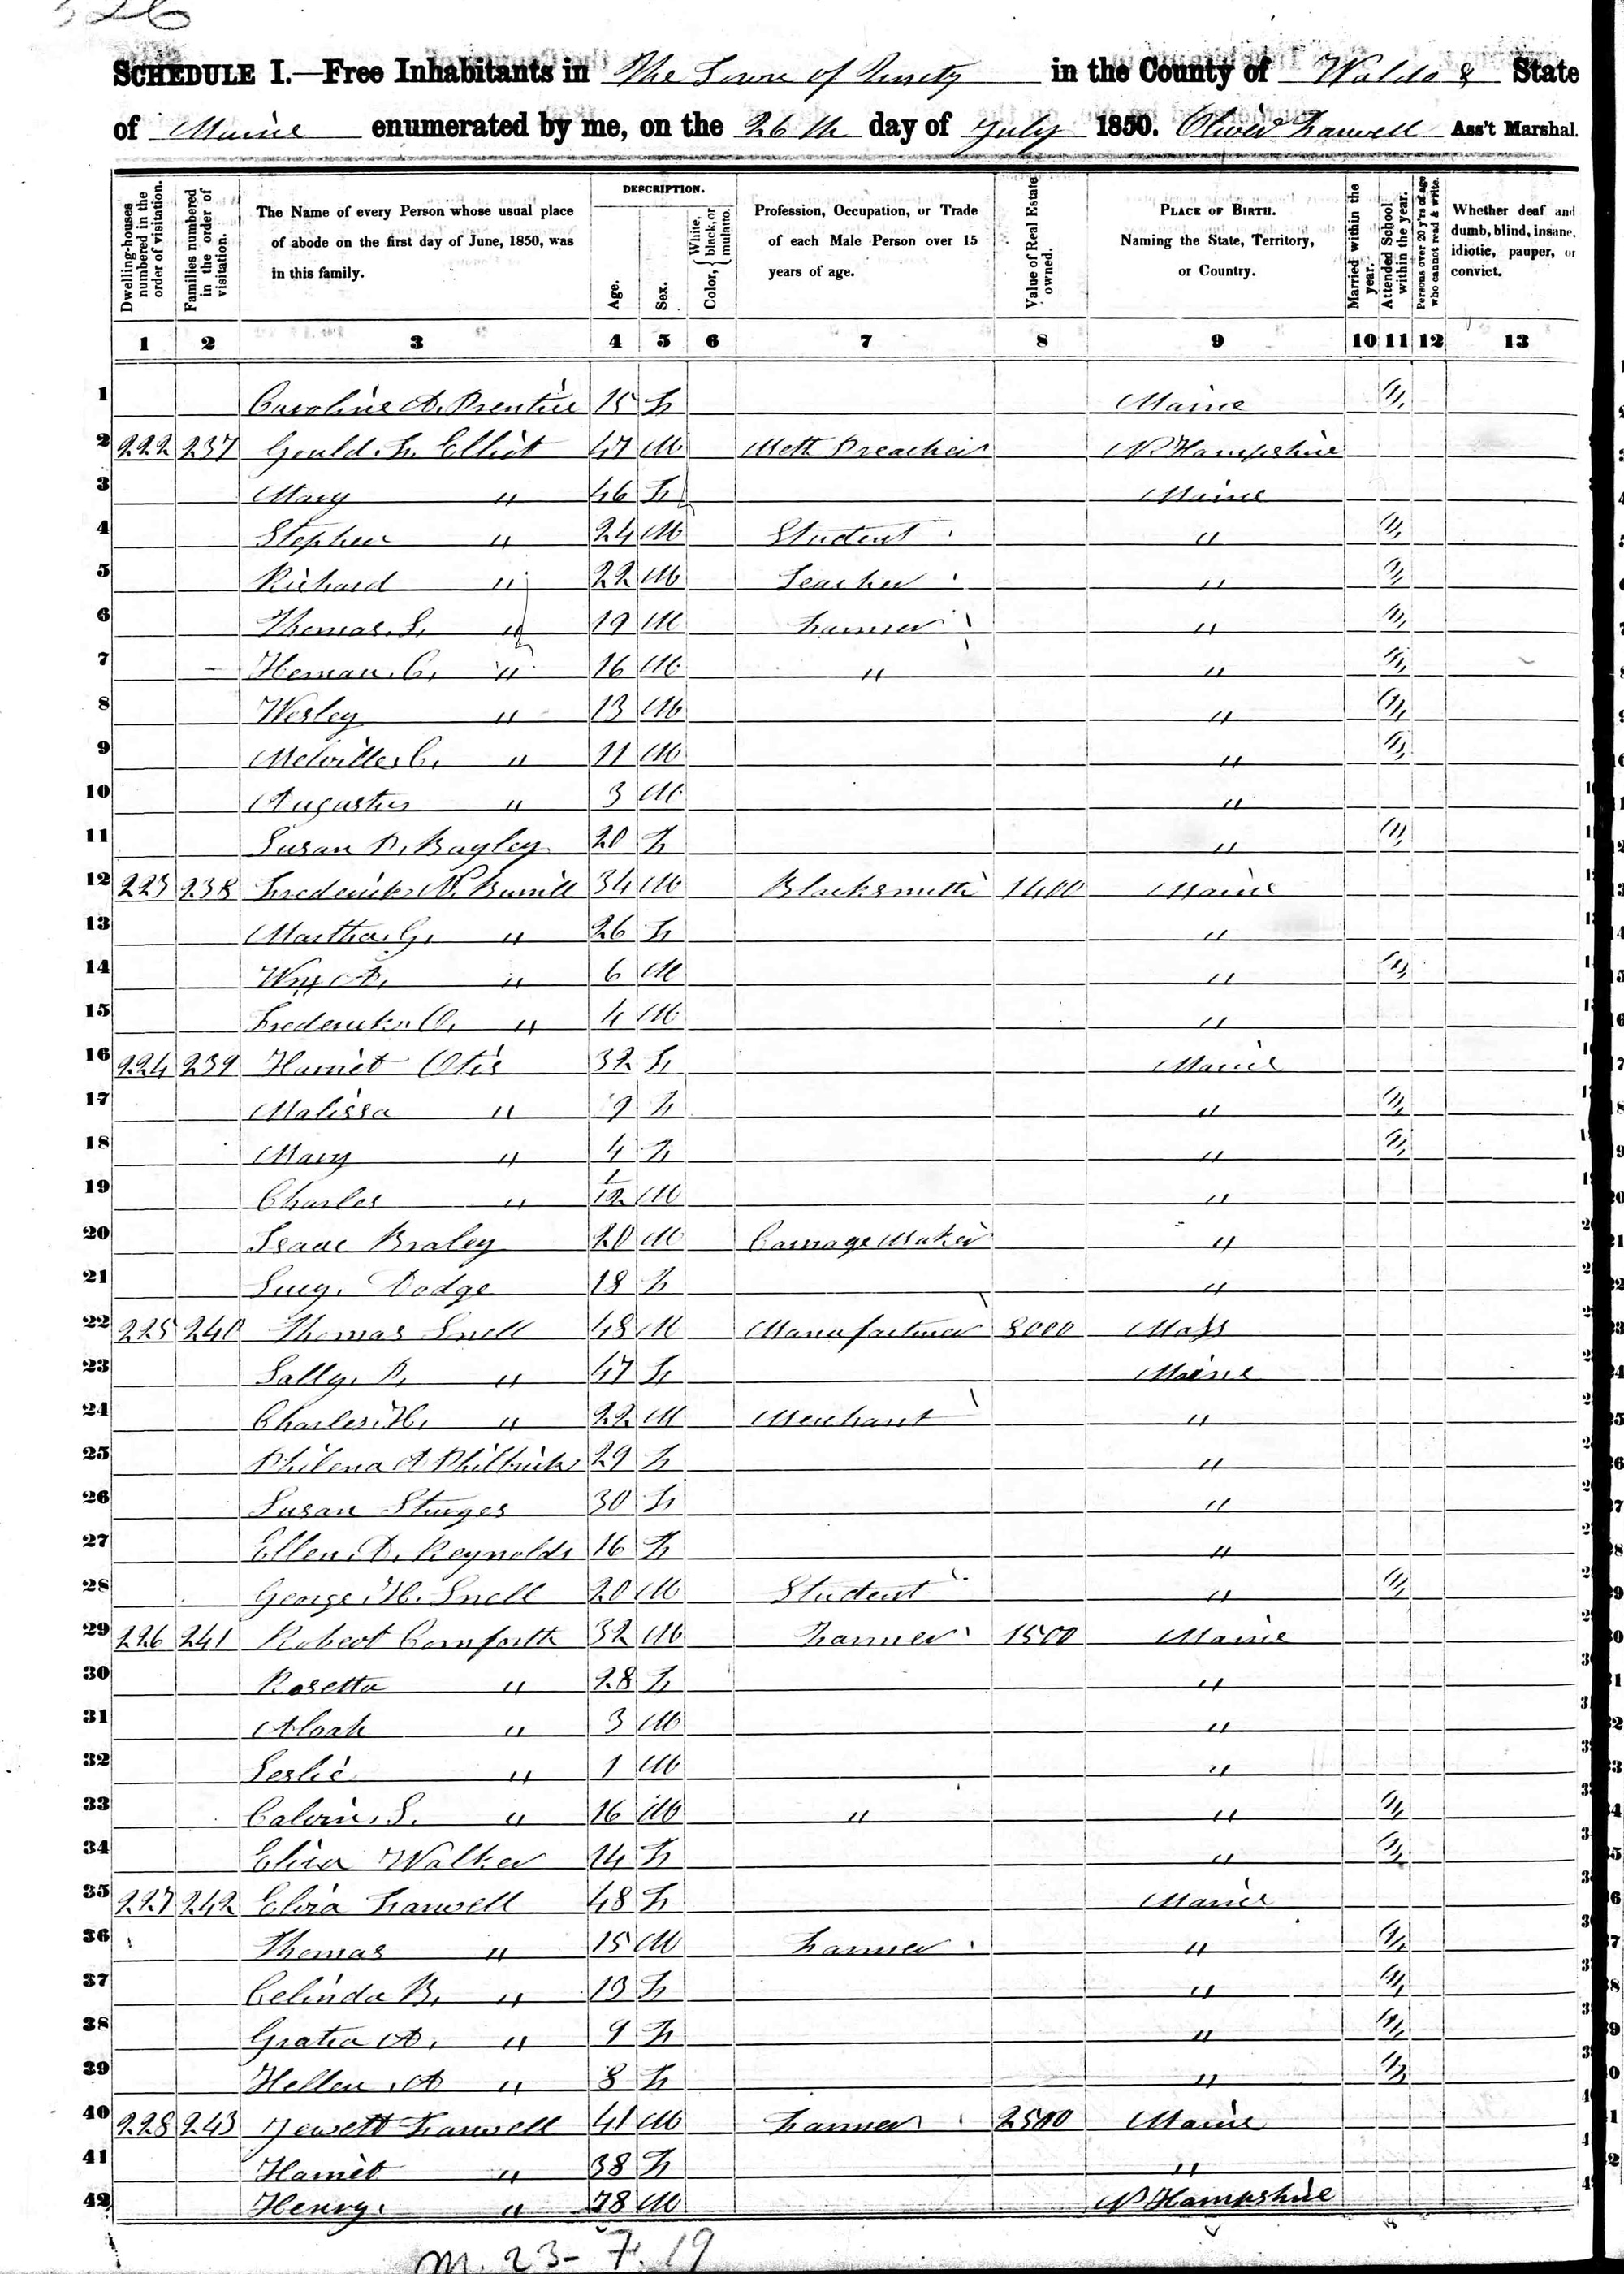 326
SCHEDULE I.—Free Inhabitants in The Town of Unity in the County of Waldo & State
of Maine enumerated by me, on the 26th day of July 1850. Oliver Farwell Ass't Marshal.
Dwelling-houses numbered in the order of visitation.
Families numbered in the order of visitation.
The Name of every Person whose usual place of abode on the first day of June, 1850, was in this family.
DESCRIPTION.
Age.
Sex.
Color, White, black, or mulatto.
Profession, Occupation, or Trade of each Male Person over 15 years of age.
Value of Real Estate owned.
PLACE OF BIRTH. Naming the State, Territory, or Country.
Married within the year.
Attended School within the year.
Persons over 20 y'rs of age who cannot read & write.
Whether deaf and dumb, blind, insane, idiotic, pauper, or convict.
1 2 3 4 5 6 7 8 9 10 11 12 13
1 Caroline A. Prentice 15 F Maine 1
2 222 237 Gould F. Elliot 47 M Meth Preacher N Hampshire
3 Mary " 46 F Maine
4 Stephen " 24 M Student " 1
5 Richard " 22 M Teacher " 1
6 Thomas S. " 19 M Farmer " 1
7 Heman C. " 16 M " " 1
8 Wesley " 13 M " 1
9 Melville C. " 11 M " 1
10 Augustus " 3 M "
11 Susan P. Bagley 20 F " 1
12 223 238 Frederick N. Burrill 34 M Blacksmith 1400 Maine
13 Martha G. " 26 F "
14 Wm A. " 6 M " 1
15 Frederick O. " 4 M "
16 224 239 Harriet Otis 32 F Maine
17 Malissa " 9 F " 1
18 Mary " 4 F " 1
19 Charles " 1/12 M "
20 Isaac Braley 20 M Carriage Maker "
21 Lucy Dodge 18 F "
22 225 240 Thomas Snell 48 M Manufacturer 8000 Mass
23 Sally P. " 47 F Maine
24 Charles H. " 22 M Merchant "
25 Philena A Philbrick 29 F "
26 Susan Sturges 30 F "
27 Ellen D. Reynolds 16 F "
28 George H. Snell 20 M Student " 1
29 226 241 Robert Cornforth 32 M Farmer 1500 Maine
30 Rosetta " 28 F "
31 " 3 M "
32 Leslie " 1 M "
33 Calvin S. " 16 M " " 1
34 Walker 14 F " 1
35 227 242 Farwell 48 F Maine
36 Thomas " 15 M Farmer " 1
37 Celinda B. " 13 F " 1
38 Gratia A. " 9 F " 1
39 Hellen A " 8 F " 1
40 228 243 Jewett Farwell 41 M Farmer 2500 Maine
41 Harriet " 38 F "
42 Henry " 78 M N Hampshire
M. 23- F. 19